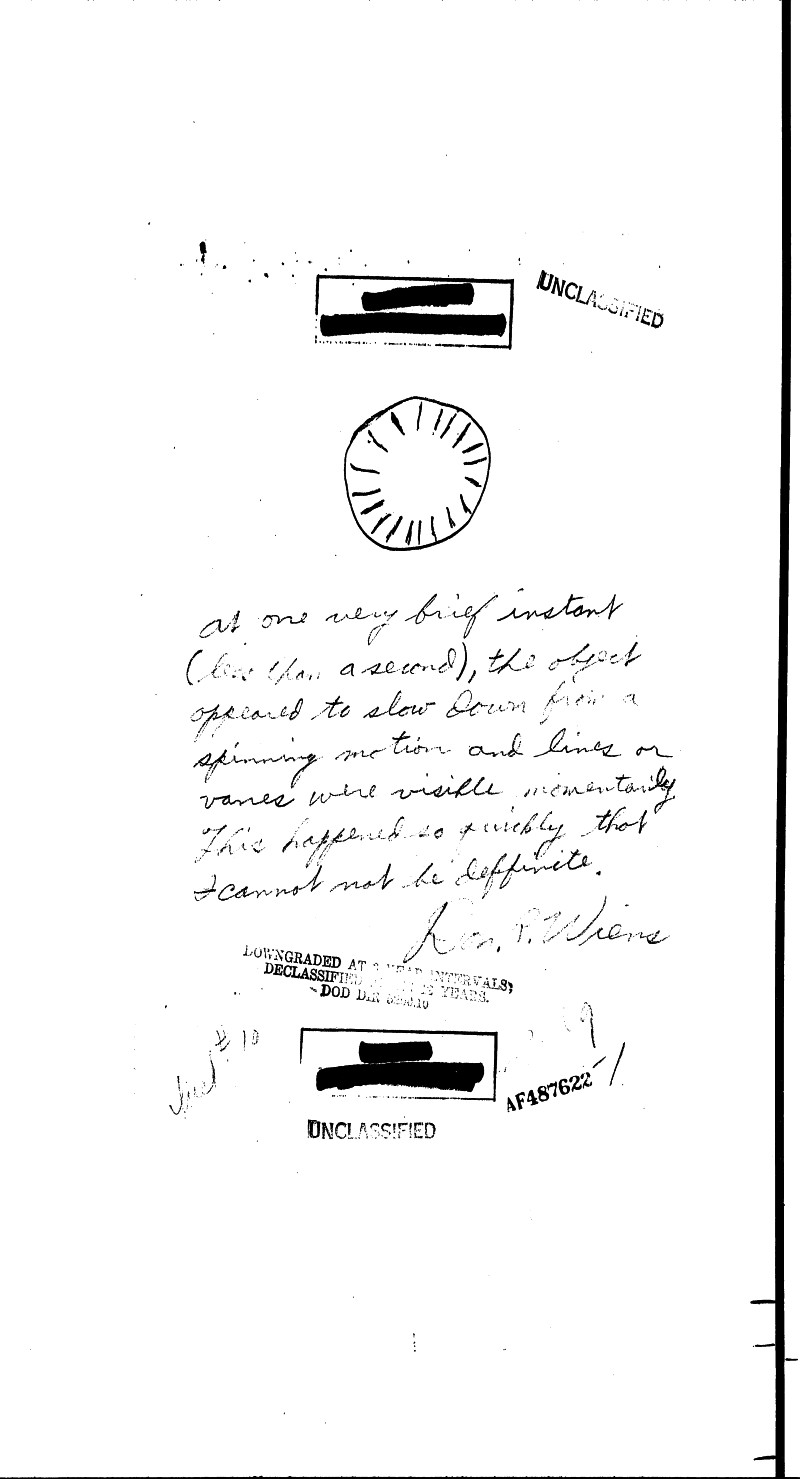 UNCLASSIFIED
at one very brief instant
(less than a second), the object
appeared to slow down from a
spinning motion and lines or
vanes were visible momentarily
This happened so quickly that
I cannot not be deffinite.
P. Wiens
DOWNGRADED AT 3 YEAR INTERVALS;
DECLASSIFIED 12 YEARS.
DOD DIR 5200.10
#10
AF487622 -1
UNCLASSIFIED